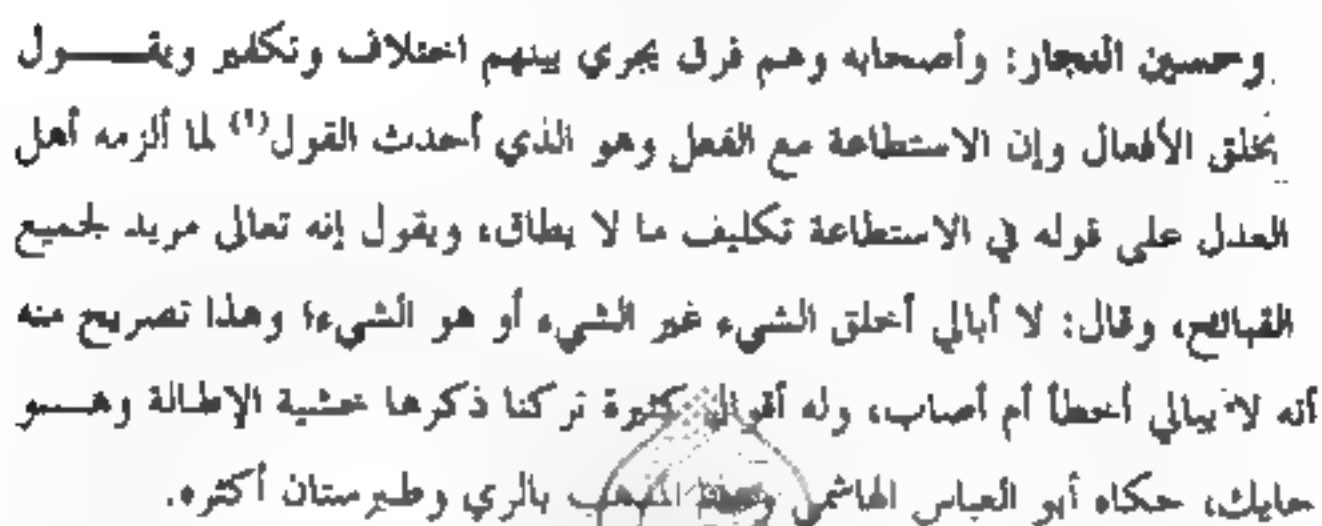 وحسين النجار: وأصحابه وهم فرق يجري بينهم اختلاف وتكفير ويقـــــول
بخلق الأفعال وإن الاستطاعة مع الفعل وهو الذي أحدث القول(١) لما ألزمه أهل
العدل على قوله في الاستطاعة تكليف ما لا يطاق، ويقول إنه تعالى مريد لجميع
القبائح، وقال: لا أبالي أخلق الشيء غير الشيء أو هو الشيء؛ وهذا تصريح منه
أنه لا يبالي أخطأ أم أصاب، وله أقوال كثيرة تركنا ذكرها خشية الإطالة وهـــو
حايك، حكاه أبو العباس الهاشمي وهذا المذهب بالري وطبرستان أكثره.